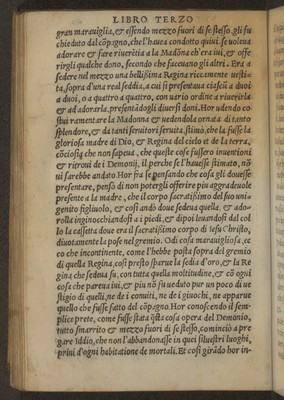 LIBRO TERZO
gran marauiglia, & essendo mezzo fuori di se stesso. gli fu
chieduto dal cōpagno, che l'hauea condotto quiui. se uolena
adorare & fare riuerētia a la Madōna ch'era iui, & offe
rirgli qualche dono, secondo che faceuano gli altri. Era a
sedere nel mezzo una bellissima Regina riccamente uesti=
ta, sopra d'una real seddia, a cui si presentaua ciascū a duoi
a duoi, o a quattro a quattro, con uario ordine a riuerirla
& ad adorarla, presentādogli diuersi doni. Hor udendo co
stui ramentare la Madonna & uedendola ornata di tanto
splendore, & da tanti seruitori seruita, stimò, che la fusse la
gloriosa madre di Dio, & Regina del cielo & de la terra,
cōciosia che non sapeua, che queste cose fussero inuentioni
& ritroui de i Demonij, il perche se l'hauesse stimato, nō
ui sarebbe andato. Hor fra se pensando che cosa gli douesse
presentare, pensò di non potergli offerire piu aggradeuole
presente a la madre, che il corpo sacratissimo del suo uni=
genito figliuolo, & cosi andò doue sedeua quella, & ado=
rolla inginocchiandosi a i piedi, & dipoi leuandosi dal col
lo la cassetta doue era il sacratissimo corpo di Iesu Christo,
diuotamente la pose nel gremio. Odi cosa marauigliosa, ec
co che incontinente, come l'hebbe posta sopra del gremio
di quella Regina, cosi presto sparue la sedia d'oro, & la Re
gina che sedeua su, con tutta quella moltitudine, & cō ogni
cosa che pareua iui, & piu nō fu ueduto pur un poco di ue
stigio di quelli, ne de i conuiti, ne de i giuochi, ne apparue
quello che fusse fatto del cōpagno. Hor conoscendo il sem=
plice prete, come fusse stata q̄sta cosa opera del Demonio,
tutto smarrito & mezzo fuori di se stesso, cominciò a pre
gare Iddio, che non l'abbandonasse in quei siluestri luoghi,
priui d'ogni habitatione de mortali. Et cosi girādo hor in=